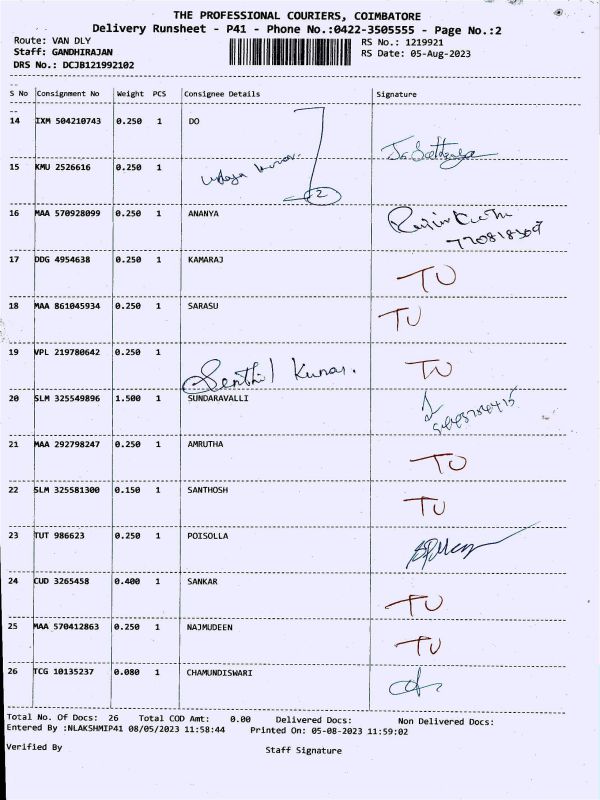 THE PROFESSIONAL COURIERS, COIMBATORE
Delivery Runsheet - P41 - Phone No.:0422-3505555 - Page No.:2
Route: VAN DLY
Staff: GANDHIRAJAN
DRS No.: DCJB121992102
RS No.: 1219921
RS Date: 05-Aug-2023
S No Consignment No Weight PCS Consignee Details Signature
14 IXM 504210743 0.250 1 DO
15 KMU 2526616 0.250 1
2
16 MAA 570928099 0.250 1 ANANYA
17 DDG 4954638 0.250 1 KAMARAJ TU
18 MAA 861045934 0.250 1 SARASU TU
19 VPL 219780642 0.250 1 TU
Senthil Kumar.
20 SLM 325549896 1.500 1 SUNDARAVALLI
21 MAA 292798247 0.250 1 AMRUTHA TU
22 SLM 325581300 0.150 1 SANTHOSH TU
23 TUT 986623 0.250 1 POISOLLA
24 CUD 3265458 0.400 1 SANKAR TU
25 MAA 570412863 0.250 1 NAJMUDEEN TU
26 TCG 10135237 0.080 1 CHAMUNDISWARI
Total No. Of Docs: 26 Total COD Amt: 0.00 Delivered Docs: Non Delivered Docs:
Entered By :NLAKSHMIP41 08/05/2023 11:58:44 Printed On: 05-08-2023 11:59:02
Verified By Staff Signature